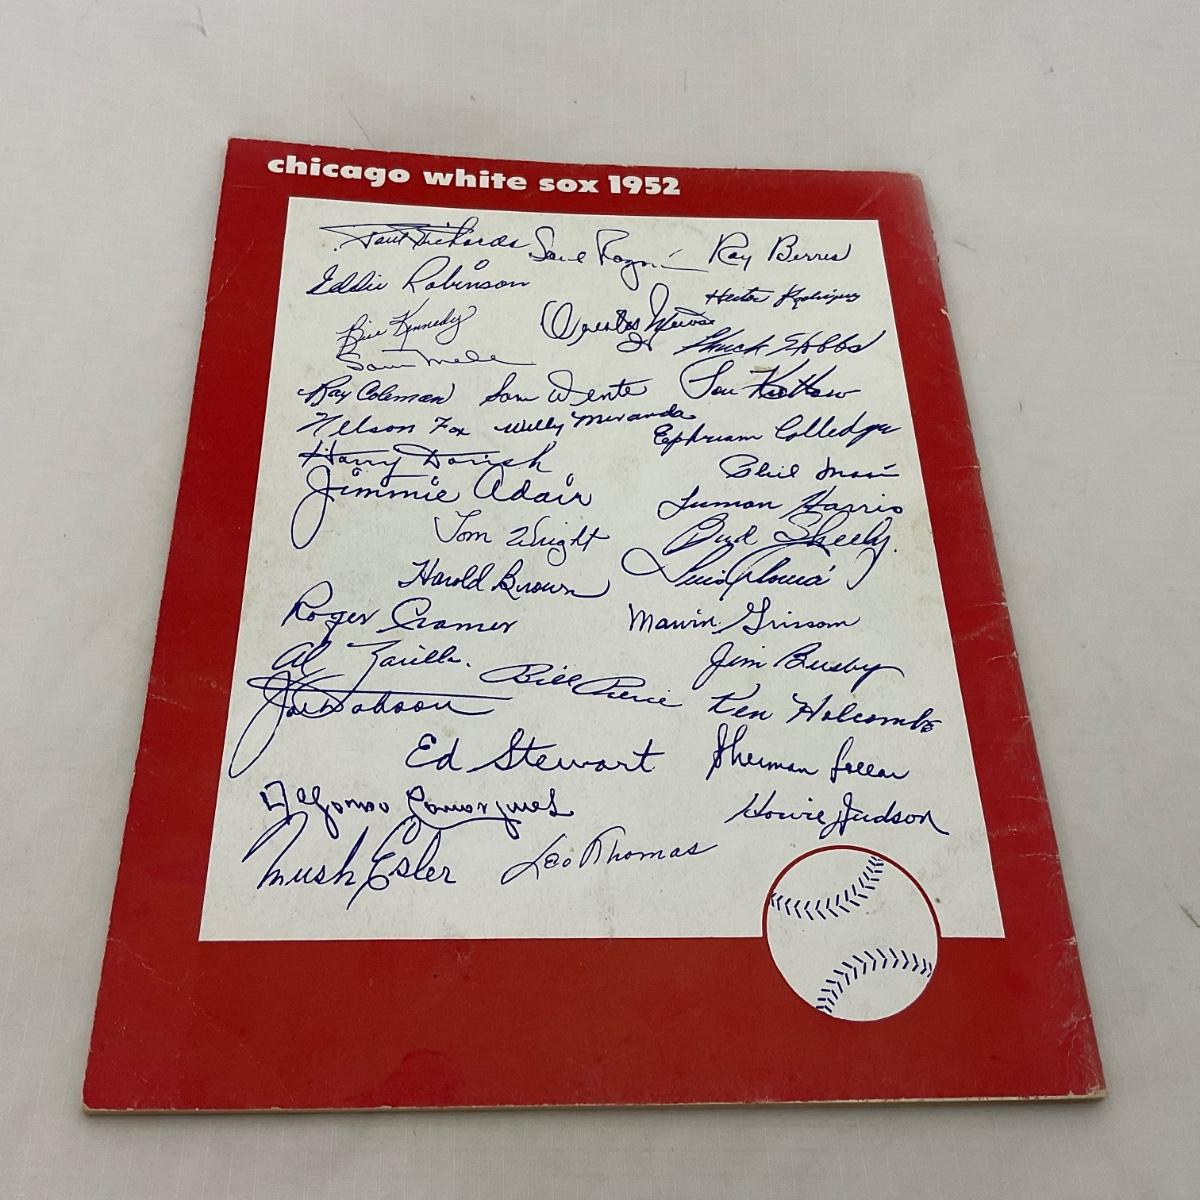 chicago white sox 1952
Paul Richards Saul Rogovin Ray Berres
Eddie Robinson Hector Rodriguez
Bill Kennedy Orestes Minoso
Chuck Stobbs
Sam Mele
Ray Coleman Sam Dente Lou Kretlow
Nelson Fox Willy Miranda
Ephriam Colledge
Harry Dorish Phil Masi
Jimmie Adair Luman Harris
Tom Wright Bud Sheely.
Harold Brown Luis Aloma
Roger Cramer Marvin Grissom
Al Zarilla. Jim Busby
Joe Dobson Bill Pierce Ken Holcombe
Ed Stewart Sherman Lollar
Howie Judson
Mush Esler Leo Thomas